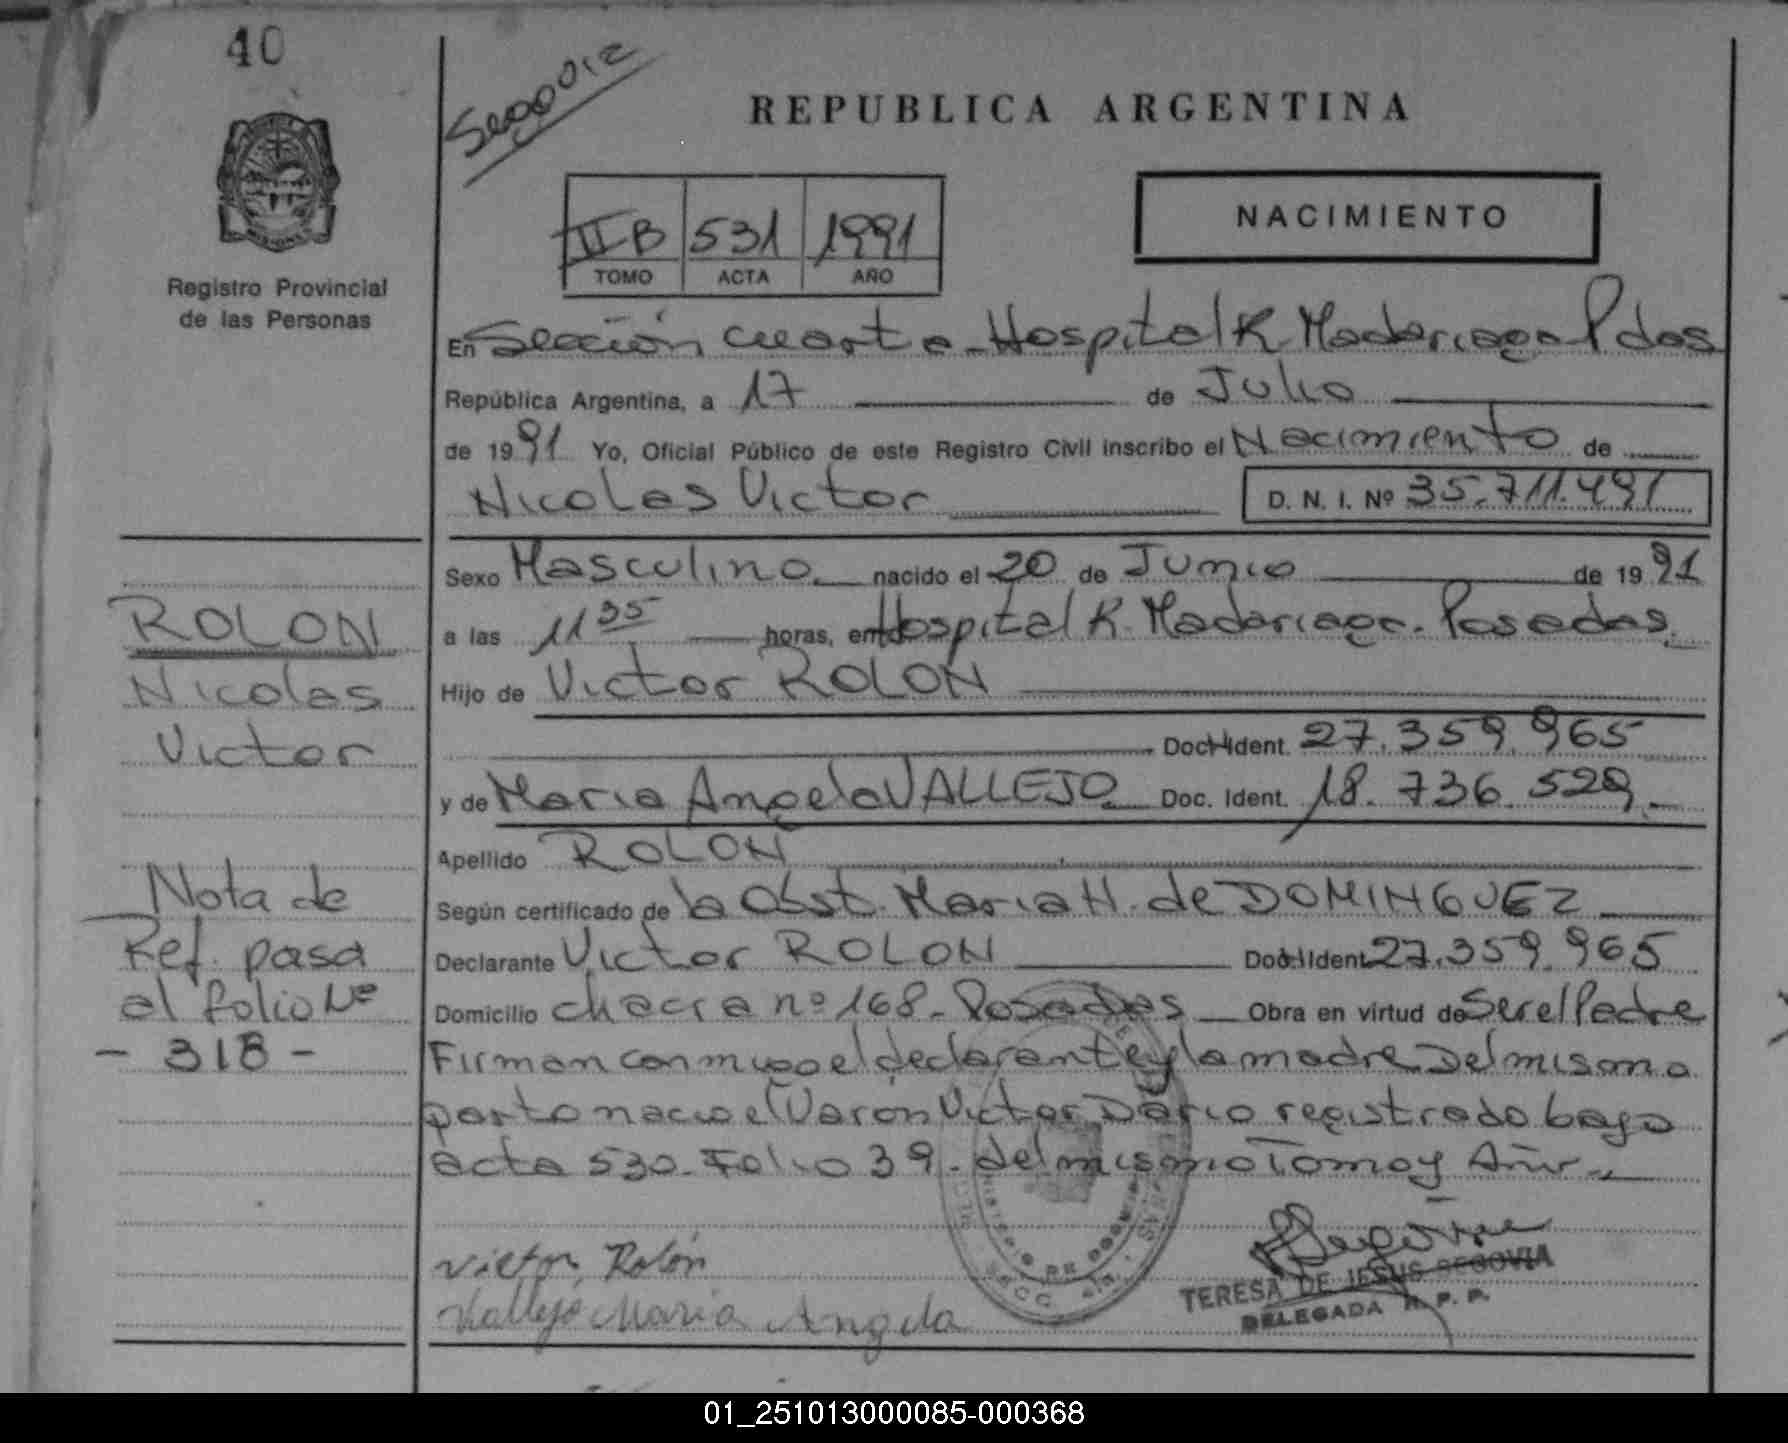 40
REPUBLICA ARGENTINA
NACIMIENTO
II B 531 1991
TOMO ACTA AÑO
Registro Provincial
de las Personas
En Sección cuarta - Hospital R Madariaga Pdas
República Argentina, a 17 de Julio
de 1991 Yo, Oficial Público de este Registro Civil inscribo el Nacimiento de
Nicolas Victor D. N. I. Nº 35.711.491
Sexo Masculino nacido el 20 de Junio de 1991
a las 11 35 horas, en Hospital R. Madariaga. Posadas.
Hijo de Victor ROLON
Doc. Ident. 27.359.965
y de Maria Angela VALLEJO Doc. Ident. 18.736.529.
Apellido ROLON
Según certificado de la Obst. Maria H. de DOMINGUEZ
Declarante Victor ROLON Doc. Ident. 27.359.965
Domicilio chacra nº 168 - Posadas Obra en virtud de Ser el Padre
Firman conmigo el declarante y la madre Del mismo
parto nacio el Varon Victor Dario registrado bajo
acta 530 - Folio 39 - del mismo Tomo y Año
ROLON
Nicolas
Victor
Nota de
Ref. pasa
al folio Nº
- 318 -
Victor Rolón
Vallejo Maria Angela
TERESA DE JESUS SEGOVIA
DELEGADA R. P. P.
01_251013000085-000368